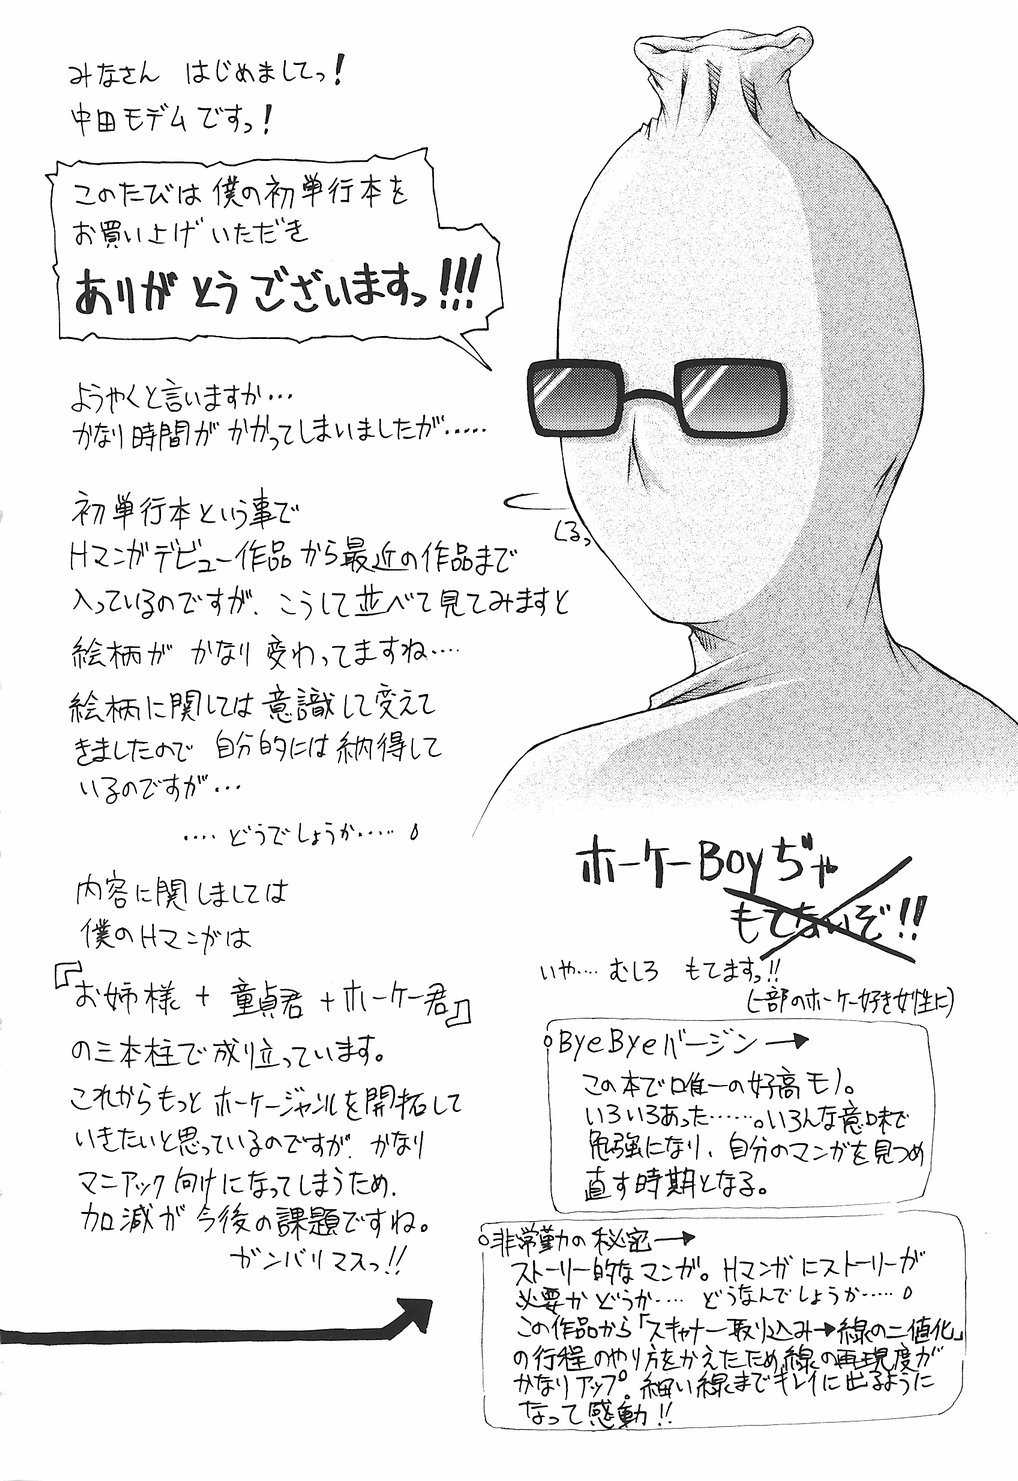 みなさん はじめましてっ!
中田モデムですっ!
このたびは僕の初単行本を
お買い上げいただき
ありがとうございますっ!!!
ようやくと言いますか…
かなり時間がかかってしまいましたが……
初単行本という事で
Hマンガデビュー作品から最近の作品まで
入っているのですが、こうして並べて見てみますと
絵柄がかなり変わってますね…‥
絵柄に関しては意識して変えて
きましたので自分的には納得して
いるのですが…
‥‥どうでしょうか‥‥‥
内容に関しましては
僕のHマンガは
『お姉様+童貞君+ホーケー君』
の三本柱で成り立っています。
これからもっとホーケージャンルを開拓して
いきたいと思っているのですが、かなり
マニアック向けになってしまうため、
加減が今後の課題ですね。
ガンバリマスっ!!
くるっ
ホーケーBoyぢゃ
もてないぞ!!
いや‥‥むしろ もてますっ!!
(一部のホーケー好き女性に)
ByeByeバージン→
この本で唯一の好高モノ。
いろいろあった……。いろんな意味で
勉強になり、自分のマンガを見つめ
直す時期となる。
非常勤の秘密→
ストーリー的なマンガ。Hマンガにストーリーが
必要かどうか‥‥どうなんでしょうか‥‥‥
この作品から「スキャナー取り込み→線の二値化」
の行程のやり方をかえたため、線の再現度が
かなりアップ。細い線までキレイに出るように
なって感動!!